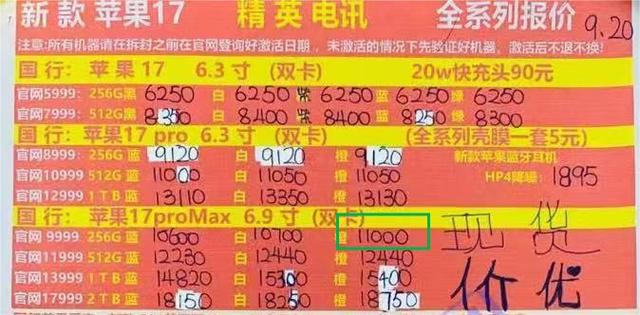 新款苹果17 精英电讯 全系列报价 9.20
注意:所有机器请在拆封之前在官网登询好激活日期，未激活的情况下先验证好机器，激活后不退不换!
国行：苹果17 6.3寸（双卡） 20w快充头90元
官网5999：256G黑 6250 白 6250 紫 6250 蓝 6250 绿 6250
官网7999：512G黑 8350 白 8400 紫 8400 蓝 8250 绿 8300
国行：苹果17 pro 6.3寸（双卡） (全系列壳膜一套5元)
官网8999：256G 蓝 9120 白 9120 橙 9120 新款苹果蓝牙耳机
官网10999 512G 蓝 11000 白 11050 橙 11050 HP4降噪：1895
官网12999 1TB 蓝 13110 白 13350 橙 13130
国行：苹果17proMax 6.9寸(双卡)
官网 9999：256G 蓝 10600 白 10700 橙 11000 现货
官网11999：512G 蓝 12230 白 12440 橙 12440
官网13999：1TB 蓝 14820 白 15300 橙 15400 价优
官网17999：2TB 蓝 18150 白 18250 橙 18750